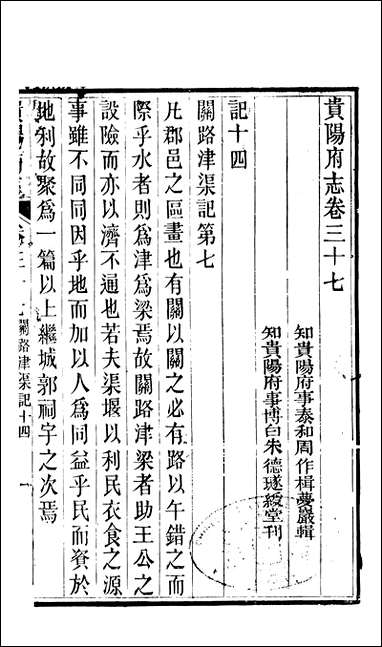 貴陽府志卷三十七
知貴陽府事泰和周作楫夢巖輯
知貴陽府事博白朱德璲綬堂刊
記十四
關路津渠記第七
凡郡邑之區畫也有關以關之必有路以午錯之而
際乎水者則為津為梁焉故關路津梁者助王公之
設險而亦以濟不通也若夫渠堰以利民衣食之源
事雖不同同因乎地而加以人為同益乎民而資於
地利故聚為一篇以上繼城郭祠宇之次焉
關路津渠記十四
一